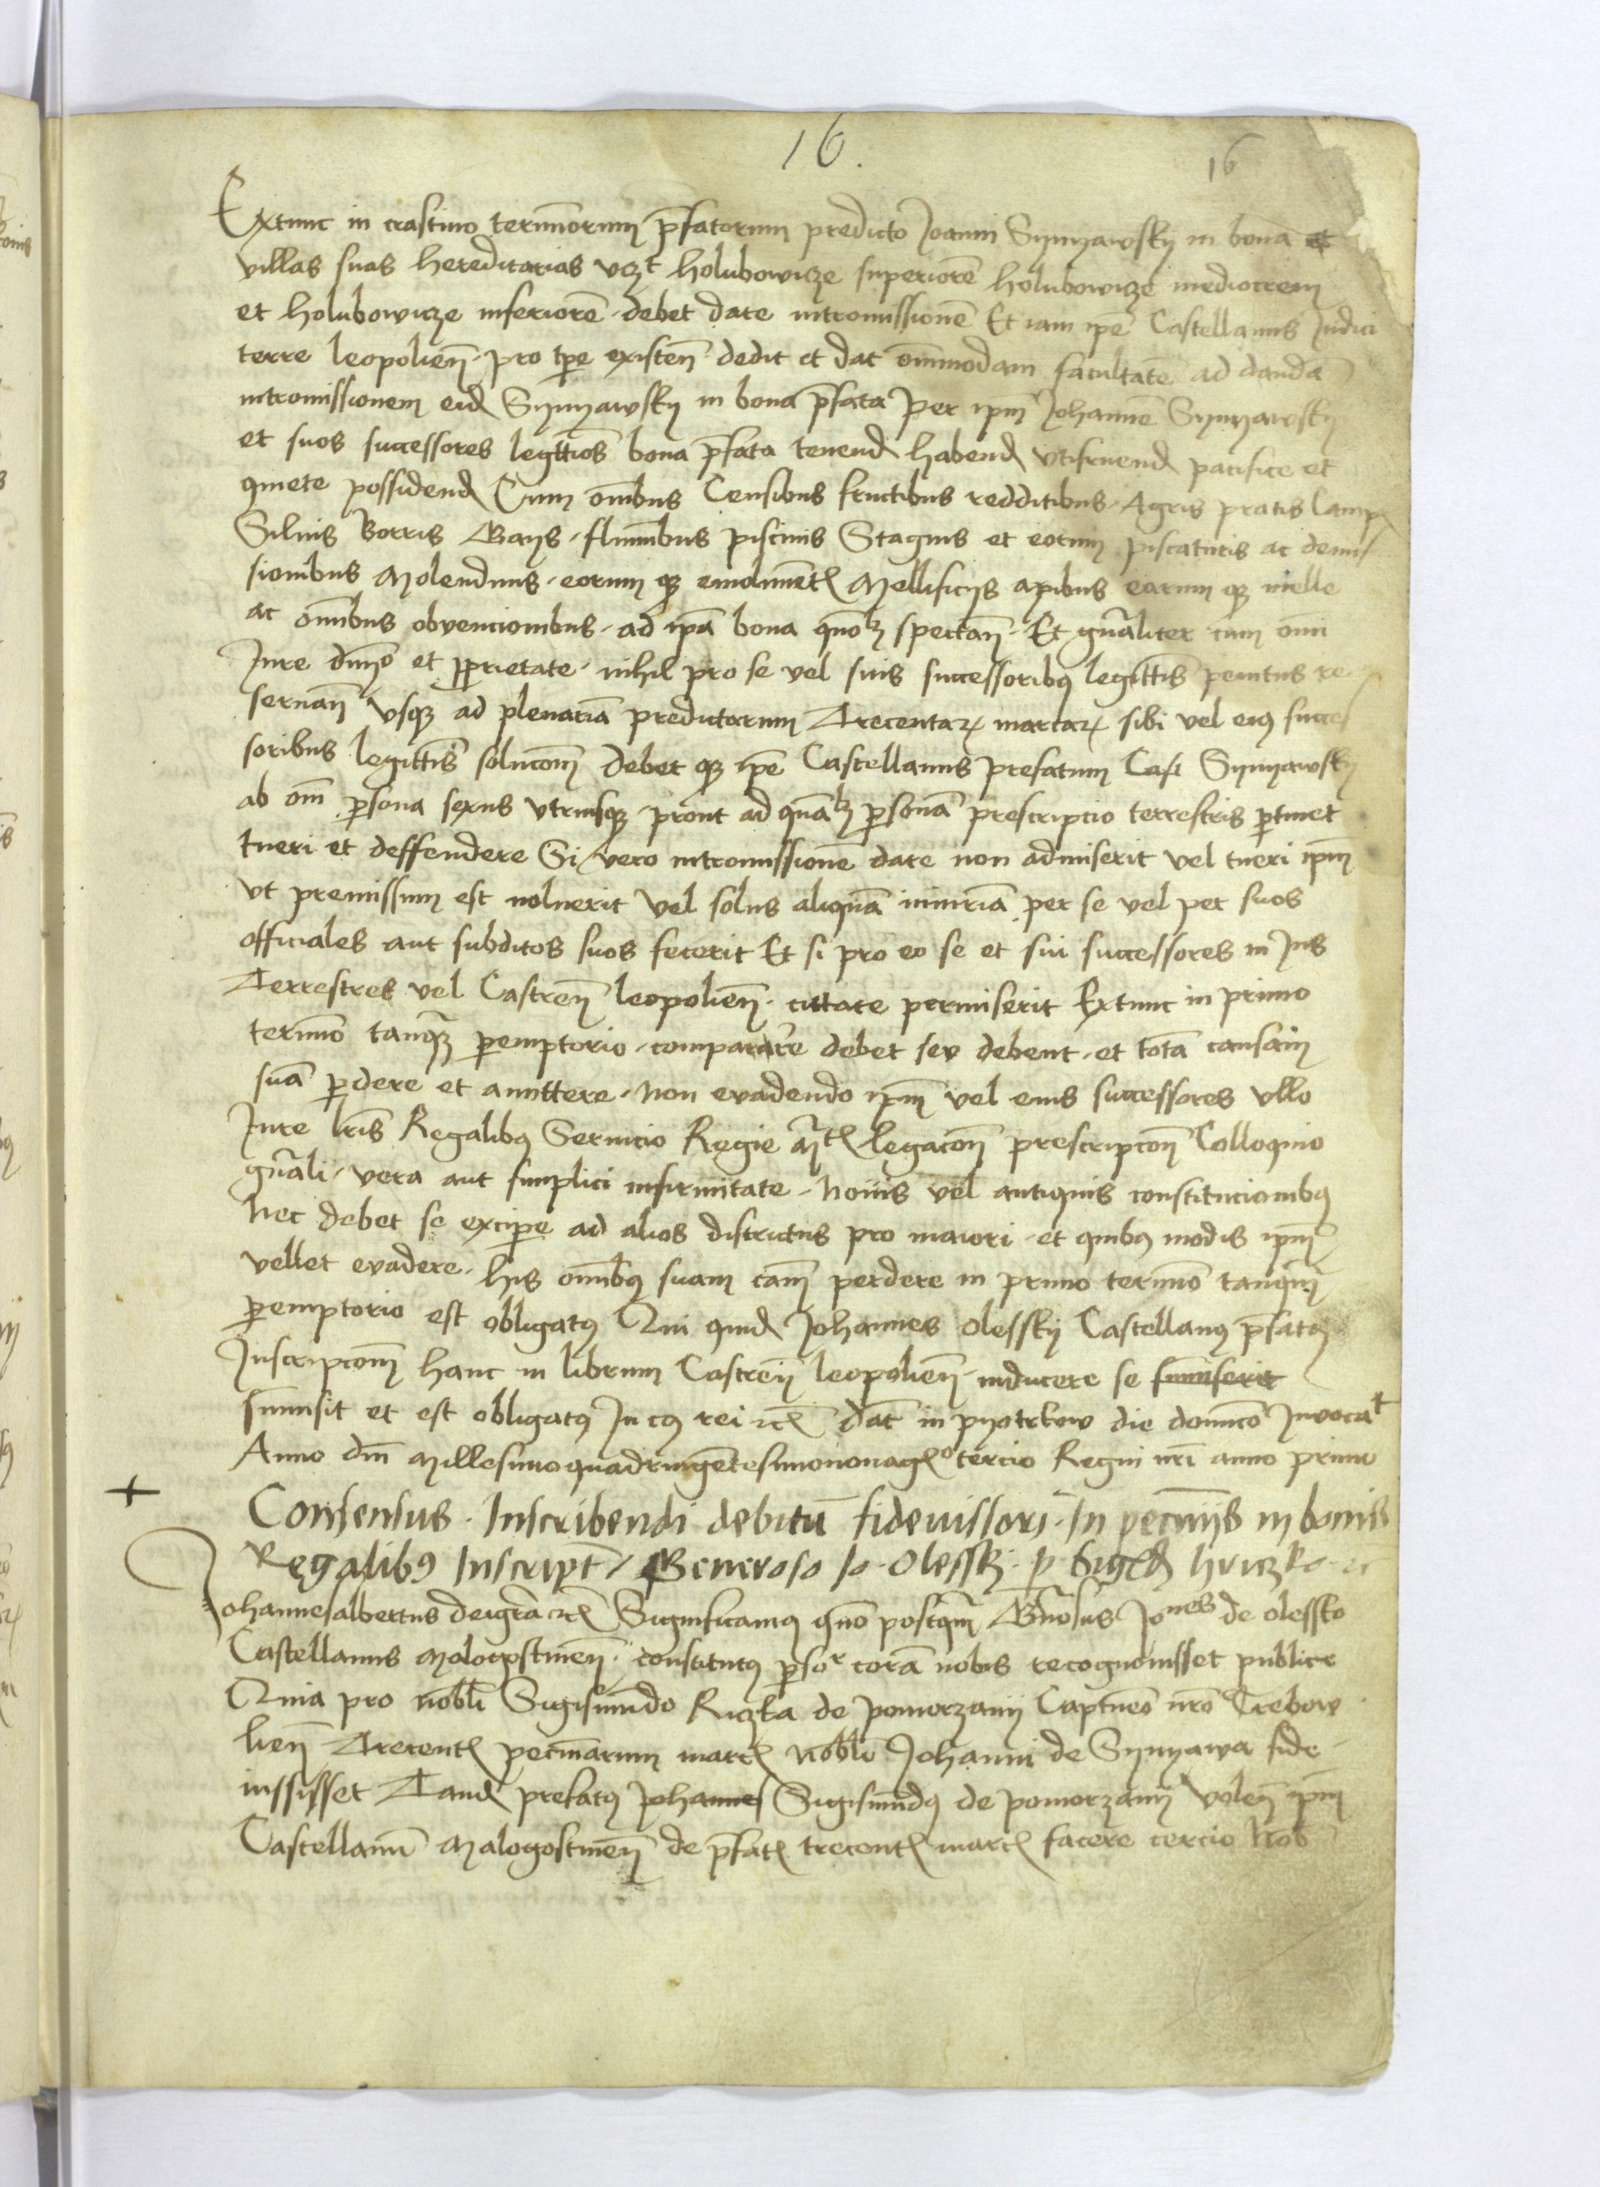 16.
16
Extunc in crastino terminorum p̄fatorum predicto Joanni Synyawsky in bona et
villas suas hereditarias vcꝫt holubowicze superiorē holubowicze mediocrem
et holubowicze inferiorē debet dare intromissionē Et iam ipē Castellanus Judici
terre leopolien̄ pro tp̄e existen̄ dedit et dat om̄imodam facultatē ad dandā
intromissionem eidꝫ Synyawsky in bona p̄fata per ipm̄ Johannē Synyawsky
et suos successores legittīos bona p̄fata tenendꝫ habendꝫ vtifruendꝫ pacifice et
quiete possidendꝫ Cum om̄ibus Censibus fructibus redditibus Agris pratis Camp
Siluis Borris Gays fluminibus piscinis Stagnis et eorum piscaturis ac demis
sionibus Molendinis eorum qꝫ emolumētꝭ Mellificijs apibus earum qꝫ melle
ac om̄ibus obvencionibus ad ipā bona quōlꝫ spectan̄ Et gn̄aliter cum omni
Jure dn̄io et ꝓprietate nihil pro se vel suis successoribꝰ legittīs penitus re
seruan̄ vsqꝫ ad plenariā predictarum Trecentaꝝ marcaꝝ sibi vel eiꝰ succes
soribus legittīs solucōem̄ debet qꝫ ipē Castellanus prefatum Synyawsky
ab om̄i ꝑsona sexus vtriusqꝫ prout ad quālꝫ ꝑsonā prescripcio terrestris ꝑtinet
tueri et deffendere Si vero intromissionē dare non admiserit vel tueri ipm̄
vt premissum est noluerit vel solus aliquā iniuriā per se vel per suos
officiales aut subditos suos fecerit Et si pro eo se et sui successores in Jus
Terrestres vel Castren̄ leopolien̄ cittare permiserit Extunc in primo
termīo tanqꝫ ꝑemptorio comparare debet seu debent et totā causam
suā ꝑdere et amittere non evadendo ipm̄ vel eius successores vllo
Jure lr̄is Regalibꝰ Seruicio Regie Mtꝭ legacōe prescripcōe Colloquio
gn̄ali vera aut simplici infirmitate Nouis vel antiquis constitucionibꝰ
Nec debet se exciꝑe ad alios districtus pro maiori et quibꝰ modis ipm̄
vellet evadere his om̄ibꝰ suam cām perdere in primo termīo tanqm̄
ꝑemptorio est obligatꝰ Qui quidꝫ Johannes Olessky Castellanꝰ p̄fatꝰ
Inscripcōem hanc in librum Castren̄ leopolien̄ inducere se summiserit
sumīsit et est obligatꝰ In cꝰ rei etcꝭ Dat in pyotrkow die domīco Invocat
Anno dn̄i Millesimoquadringētesimononagꝭo tercio Regni nr̄i anno primo
+
Consensus Inscribendi debitū fideiussori In pecunijs in bonis
Regalibꝰ Inscript̄ Generoso Jo Olesski p Sigꝭdꝫ hriczko
Johannesalbertus deigrā etcꝭ Significamꝰ quō postqm̄ Gn̄osus Jones de olessko
Castellanus Malogostinen̄ constitutꝰ ꝑsor corā nobis recognouisset publice
Quia pro nobli Sigismūdo Riczka de pomorzany Captneo nr̄o Trebow
lien̄ Trecentꝭ pecuniarum marcꝭ nobli Johanni de Synyawa fide
iussisset Tandꝫ prefatꝰ Johannes Sigismūdꝰ de pomorzany volen̄ ipm̄
Castellanū Malogostinen̄ de p̄fatꝭ trecentꝭ marcꝭ facere cercio Nob